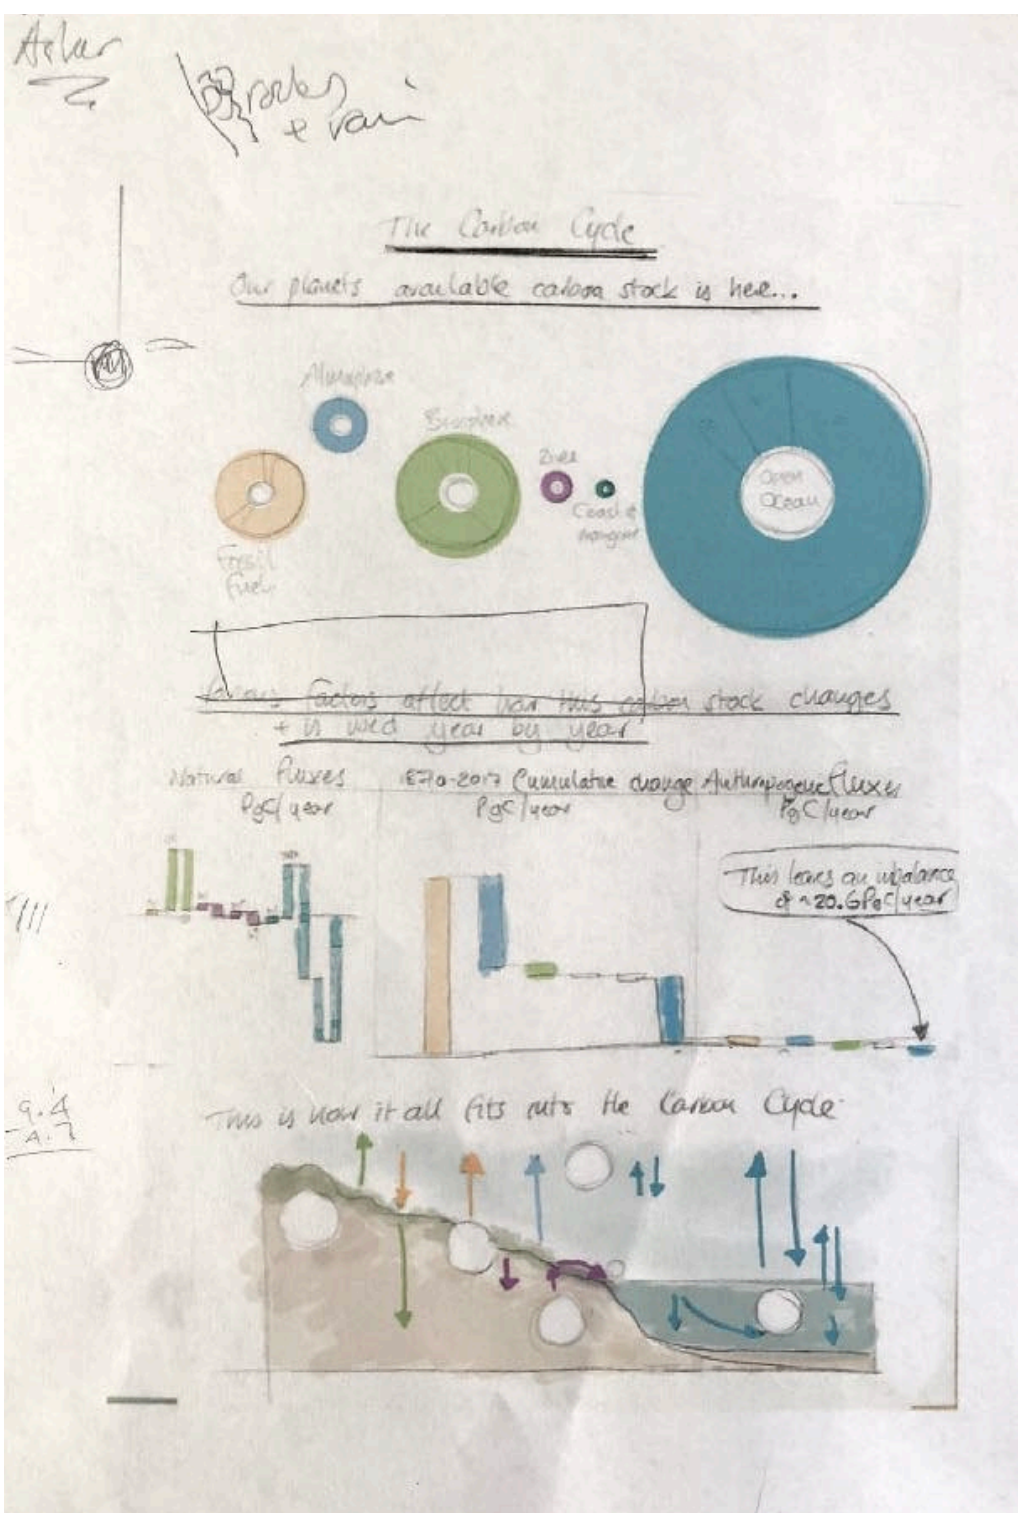 rocks
+ rain
The Carbon Cycle
Our planets available carbon stock is here...
Atmosphere
Biosphere
Coast &
Open
Ocean
Fossil
Fuel
Factors affect how this carbon stock changes
+ is used year by year
Natural Fluxes
PgC/year
1870-2017 Cumulative change
PgC/year
Anthropogenic Fluxes
PgC/year
This leaves an imbalance
of ~20.6PgC/year
9.4
4.7
This is how it all fits into the Carbon Cycle